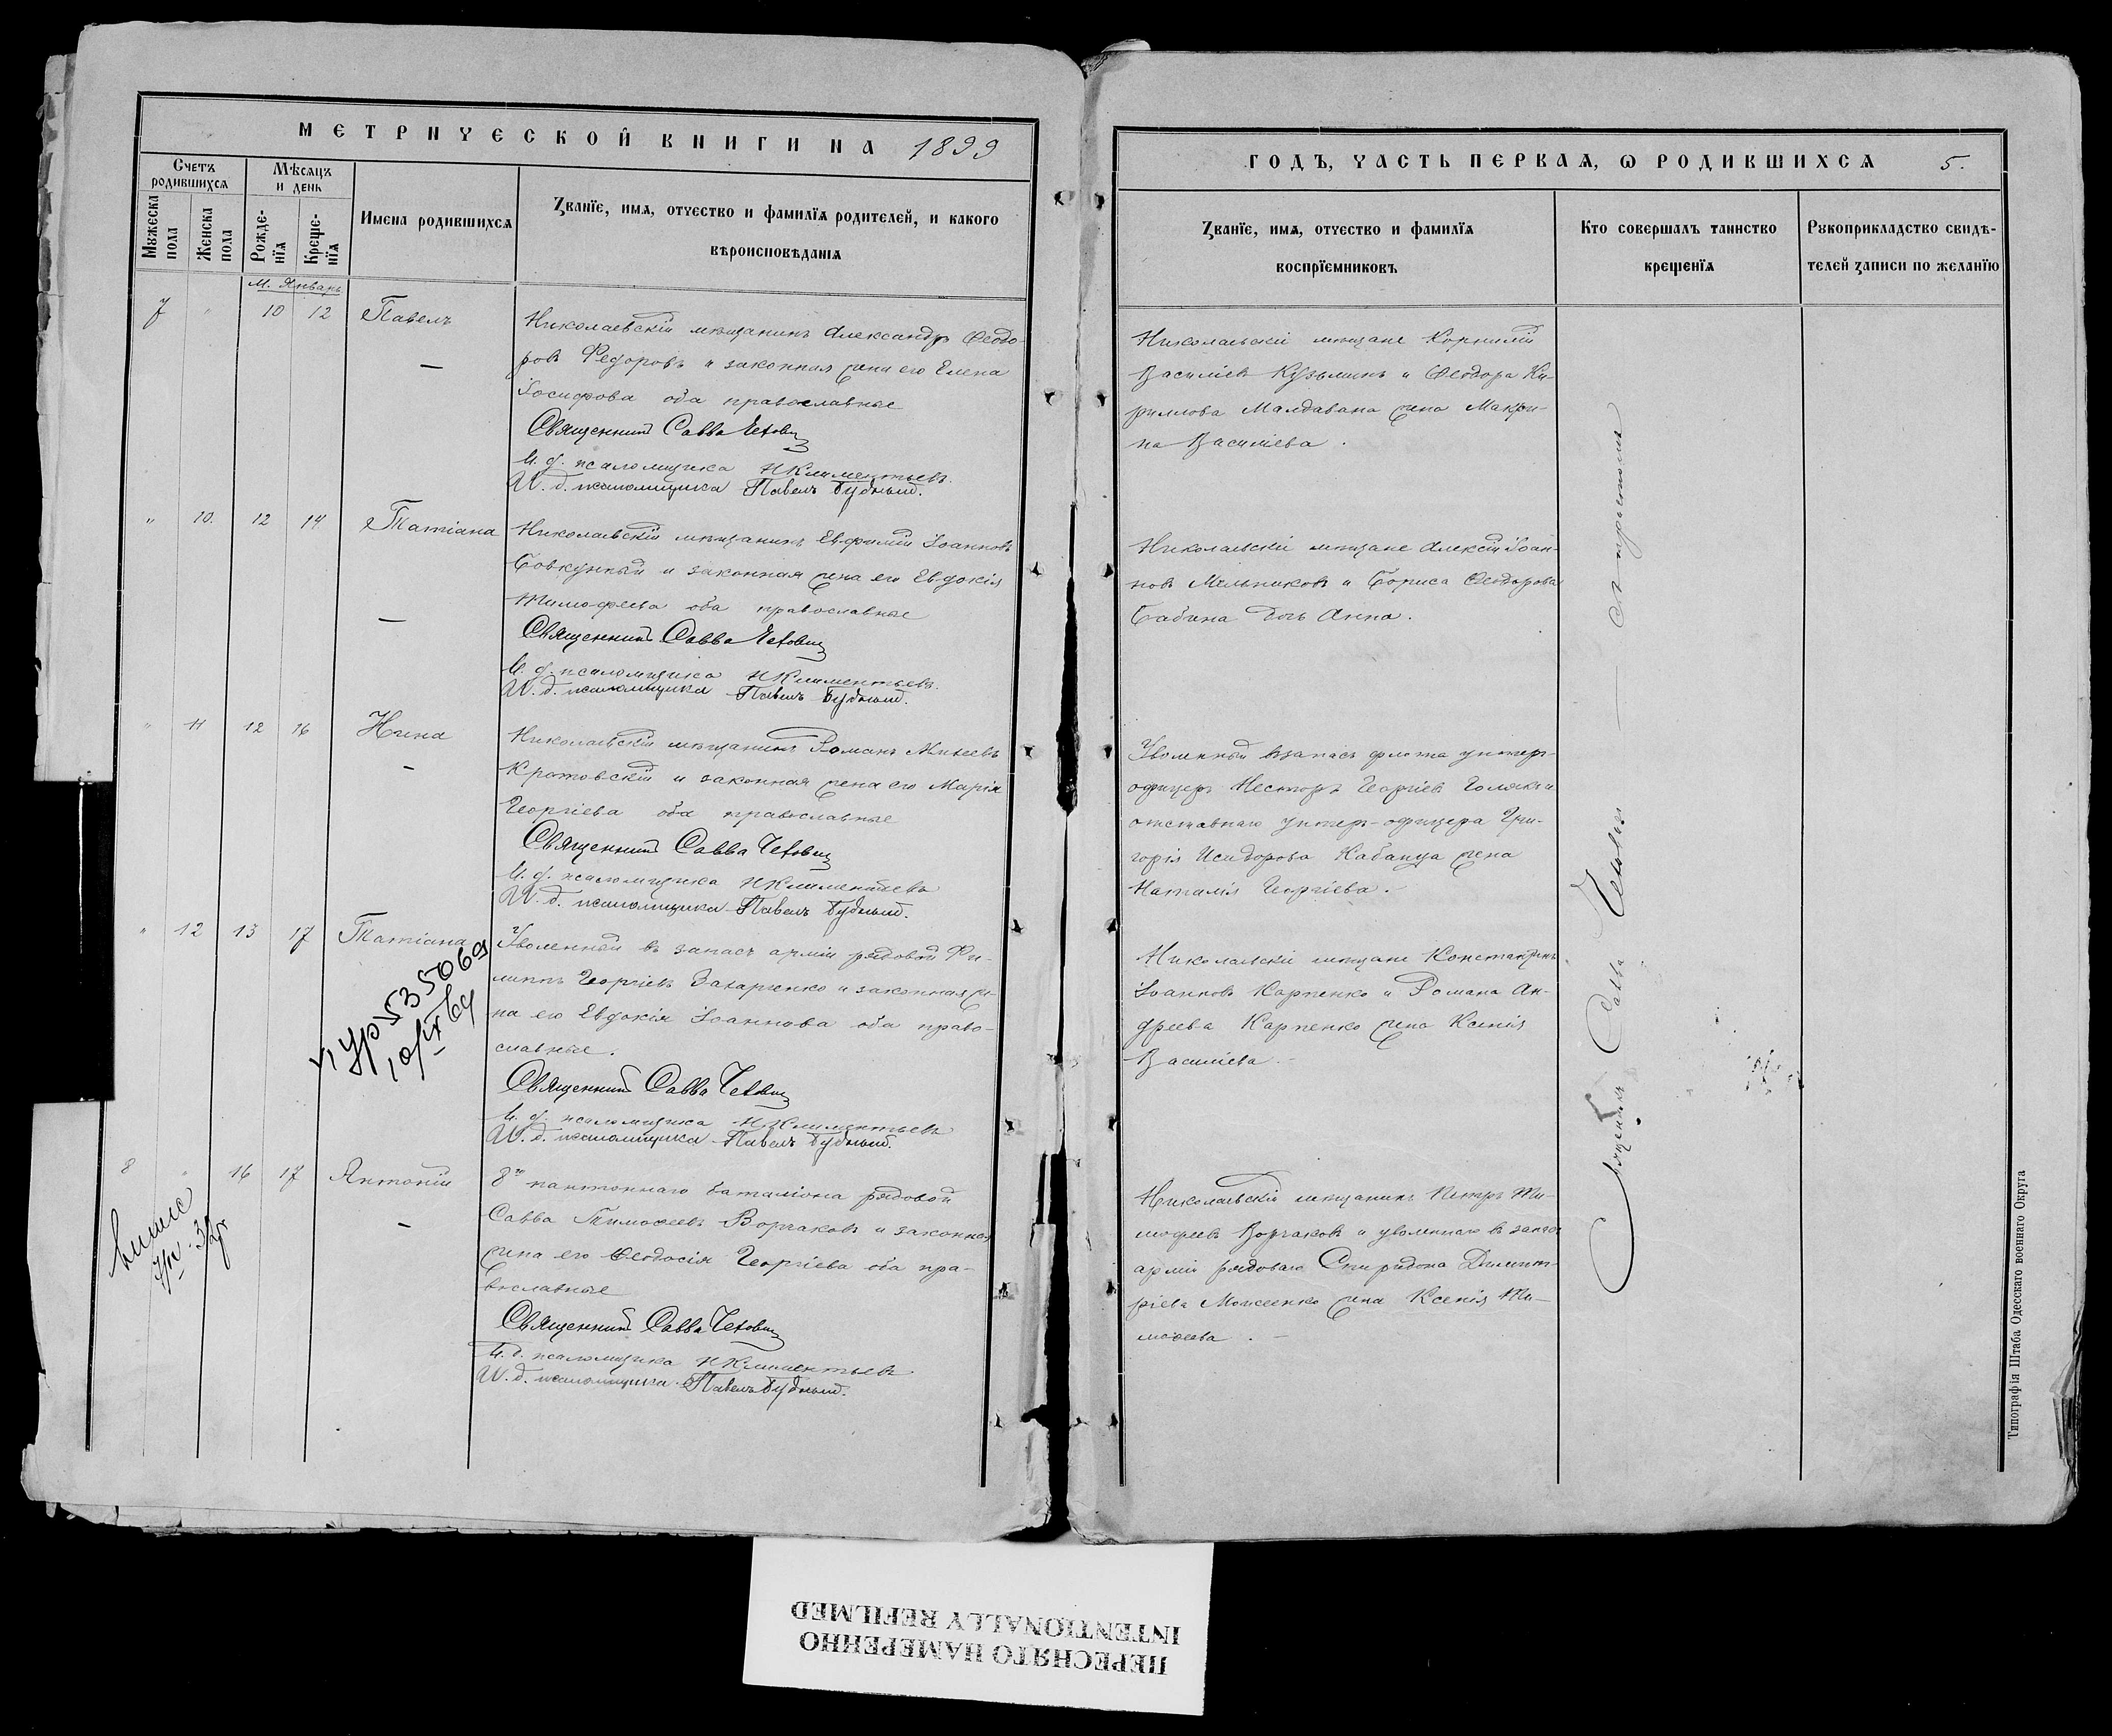 МЕТРИЧЕСКОЙ КНИГИ НА 1899
Счетъ родившихся
Мѣсяцъ и день
Мужеска пола
Женска пола
Рожденїя
Крещенїя
Имена родившихся
Званїе, имя, отчество и фамилїя родителей, и какого
вѣроисповѣданїя
М. Январь
7 " 10 12 Павелъ
Николаевскій мѣщанинъ Александръ Ѳеодо-
ровъ Федоровъ и законная жена его Елена
Іосифова оба православные
Священникъ Савва
И. д. псаломщика Н Климентьевъ.
И. д. псаломщика Павелъ Будный.
" 10. 12 14 Татіана
Николаевскій мѣщанинъ Евфимій Іоанновъ
Бовкунный и законная жена его Евдокія
Тимофеева оба православные
Священникъ Савва
И. д. псаломщика Н Климентьевъ.
И. д. псаломщика Павелъ Будный.
" 11 12 16 Нина
Николаевскій мѣщанинъ Романъ Михеевъ
Кротовскій и законная жена его Марія
Георгіева оба православные
Священникъ Савва
И. д. псаломщика Н Климентьевъ
И. д. псаломщика Павелъ Будный.
" 12 13 17 Татіана
Уволенный въ запасъ арміи рядовой Фи-
липпъ Георгіевъ Захарченко и законная же-
на его Евдокія Іоаннова оба право-
славные.
535069
10/IX 69
Священникъ Савва
И. д. псаломщика Н Климентьевъ
И. д. псаломщика Павелъ Будный.
8 " 16 17 Антоній
8го баталіона рядовой
Савва Тимоѳеевъ Ворчаковъ и законная
жена его Ѳеодосія Георгіева оба пра-
вославные
Священникъ Савва
И. д. псаломщика Н Климентьевъ
И. д. псаломщика Павелъ Будный.
ГОДЪ, ЧАСТЬ ПЕРВАЯ, Ѡ РОДИВШИХСЯ 5.
Званїе, имя, отчество и фамилїя
воспрїемниковъ
Кто совершалъ таинство
крещенїя
Рукоприкладство свидѣ-
телей записи по желанїю
Николаевскіе мѣщане Корнилій
Василіевъ Кузьминъ и Ѳеодора Ки-
риллова Малдавана жена Макри-
на Василіева.
Николаевскіе мѣщане Алексій Іоан-
новъ Мельниковъ и Бориса Ѳеодорова
Бабина дочь Анна.
Уволенный въ запасъ флота унтеръ-
офицеръ Несторъ Георгіевъ и
отставнаго унтеръ-офицера Гри-
горія Исидорова Кабанца жена
Наталія Георгіева.
Николаевскіе мѣщане Константинъ
Іоанновъ Карпенко и Романа Ан-
дреева Карпенко жена Ксенія
Василіева.
Николаевскій мѣщанинъ Петръ Ти-
мофеевъ Ворчаковъ и уволеннаго въ запасъ
арміи рядоваго Спиридона Димит-
ріева Моисеенко жена Ксенія Ти-
моѳеева.
Священникъ Савва
Типографія Штаба Одесскаго военнаго Округа
ПЕРЕСНЯТО НАМЕРЕННО
INTENTIONALLY REFILMED